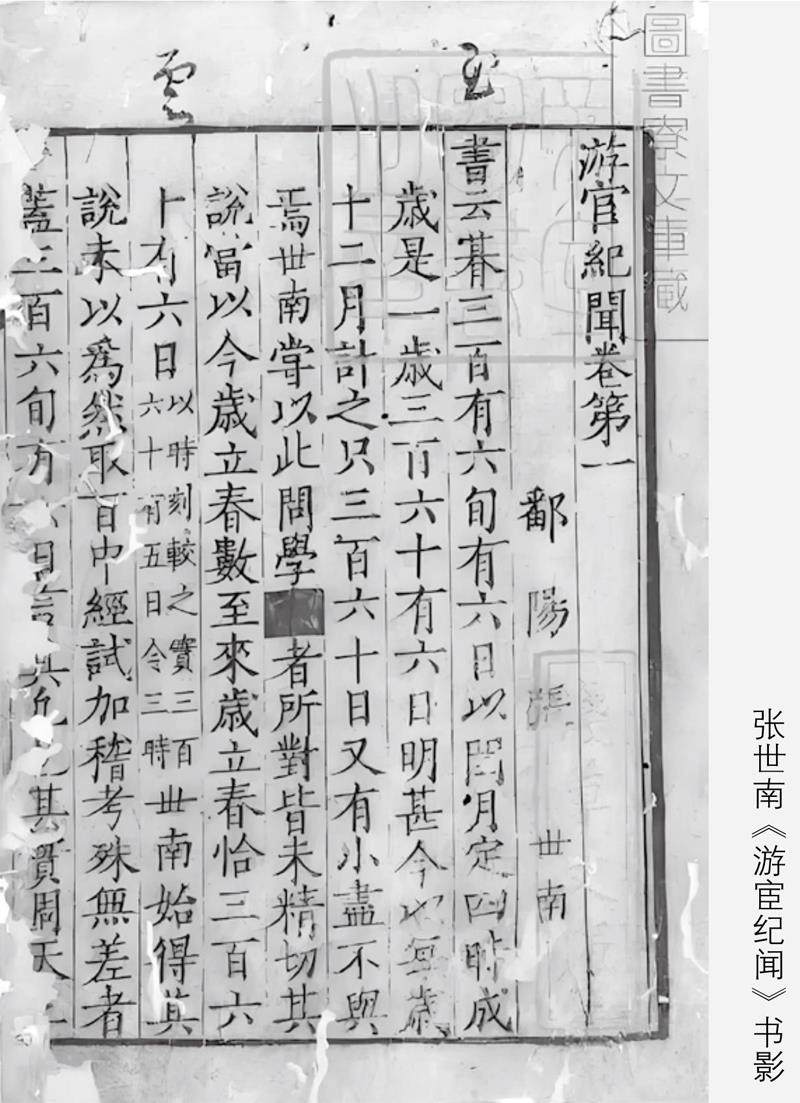 圖書寮文庫藏
游宦紀聞卷第一
鄱陽張 世南
書云朞三百有六旬有六日以閏月定四時成
歲是一歲三百六十有六日明甚今也每歲
十二月計之只三百六十日又有小盡不與
焉世南嘗以此問學者所對皆未精切其
說當以今歲立春數至來歲立春恰三百六
十有六日以時刻較之實三百六十有五日令三時世南始得其
說未以為然取百中經試加稽考殊無差者
蓋三百六旬有六日言其
其實周天
张世南《游宦纪闻》书影